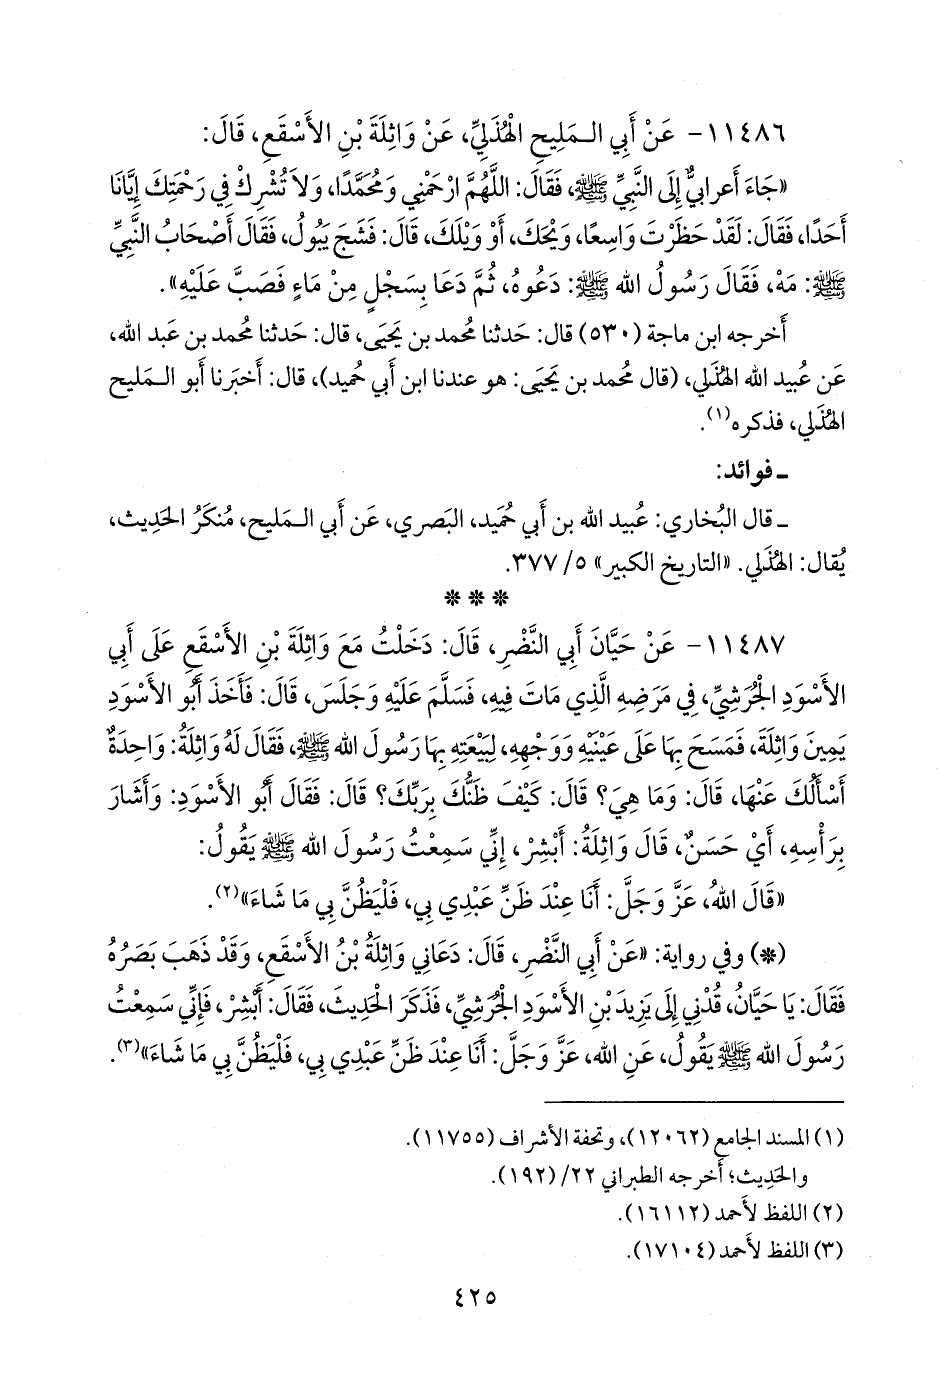 ١١٤٨٦- عَنْ أَبِي الـمَلِيحِ الْهُذَلِيِّ، عَنْ وَاثِلَةَ بْنِ الأَسْقَعِ، قَالَ:
«جَاءَ أَعرابيٌّ إِلَى النَّبِيِّ ﷺ، فَقَالَ: اللَّهُمَّ ارْحَمْنِي وَمُحَمَّدًا، وَلاَ تُشْرِكْ فِي رَحْمَتِكَ إِيَّانَا
أَحَدًا، فَقَالَ: لَقَدْ حَظَرْتَ وَاسِعًا، وَيْحَكَ، أَوْ وَيْلَكَ، قَالَ: فَشَجَ يَبُولُ، فَقَالَ أَصْحَابُ النَّبِيِّ
ﷺ: مَهْ، فَقَالَ رَسُولُ الله ﷺ: دَعُوهُ، ثُمَّ دَعَا بِسَجْلٍ مِنْ مَاءٍ فَصَبَّ عَلَيْهِ».
أَخرجه ابن ماجة (٥٣٠) قال: حَدثنا مُحمد بن يَحيَى، قال: حَدثنا مُحمد بن عَبد الله،
عَن عُبيد الله الهُذَلي، (قال مُحمد بن يَحيَى: هو عندنا ابن أَبي حُميد)، قال: أَخبَرنا أَبو الـمَليح
الهُذَلي، فذكره(١).
ـ فوائد:
ـ قال البُخاري: عُبيد الله بن أَبي حُميد، البَصري، عَن أَبي الـمَليح، مُنكَرُ الحَدِيث،
يُقال: الهُذَلي. «التاريخ الكبير» ٥/ ٣٧٧.
* * *
١١٤٨٧- عَنْ حَيَّانَ أَبِي النَّضْرِ، قَالَ: دَخَلْتُ مَعَ وَاثِلَةَ بْنِ الأَسْقَعِ عَلَى أَبِي
الأَسْوَدِ الْجُرَشِيِّ، فِي مَرَضِهِ الَّذِي مَاتَ فِيهِ، فَسَلَّمَ عَلَيْهِ وَجَلَسَ، قَالَ: فَأَخَذَ أَبُو الأَسْوَدِ
يَمِينَ وَاثِلَةَ، فَمَسَحَ بِهَا عَلَى عَيْنَيْهِ وَوَجْهِهِ، لِبَيْعَتِهِ بِهَا رَسُولَ الله ﷺ، فَقَالَ لَهُ وَاثِلَةُ: وَاحِدَةٌ
أَسْأَلُكَ عَنْهَا، قَالَ: وَمَا هِيَ؟ قَالَ: كَيْفَ ظَنُّكَ بِرَبِّكَ؟ قَالَ: فَقَالَ أَبُو الأَسْوَدِ: وَأَشَارَ
بِرَأْسِهِ، أَيْ حَسَنٌ، قَالَ وَاثِلَةُ: أَبْشِرْ، إِنِّي سَمِعْتُ رَسُولَ الله ﷺ يَقُولُ:
«قَالَ اللهُ، عَزَّ وَجَلَّ: أَنَا عِنْدَ ظَنِّ عَبْدِي بِي، فَلْيَظُنَّ بِي مَا شَاءَ»(٢).
(*) وفي رواية: «عَنْ أَبِي النَّضْرِ، قَالَ: دَعَانِي وَاثِلَةُ بْنُ الأَسْقَعِ، وَقَدْ ذَهَبَ بَصَرُهُ
فَقَالَ: يَا حَيَّانُ، قُدْنِي إِلَى يَزِيدَ بْنِ الأَسْوَدِ الْجُرَشِيِّ، فَذَكَرَ الْحَدِيثَ، فَقَالَ: أَبْشِرْ، فَإِنِّي سَمِعْتُ
رَسُولَ الله ﷺ يَقُولُ، عَنِ الله، عَزَّ وَجَلَّ: أَنَا عِنْدَ ظَنِّ عَبْدِي بِي، فَلْيَظُنَّ بِي مَا شَاءَ»(٣).
(١) المسند الجامع (١٢٠٦٢)، وتحفة الأشراف (١١٧٥٥).
والحَدِيث؛ أَخرجه الطبراني ٢٢/ (١٩٢).
(٢) اللفظ لأَحمد (١٦١١٢).
(٣) اللفظ لأَحمد (١٧١٠٤).
٤٢٥